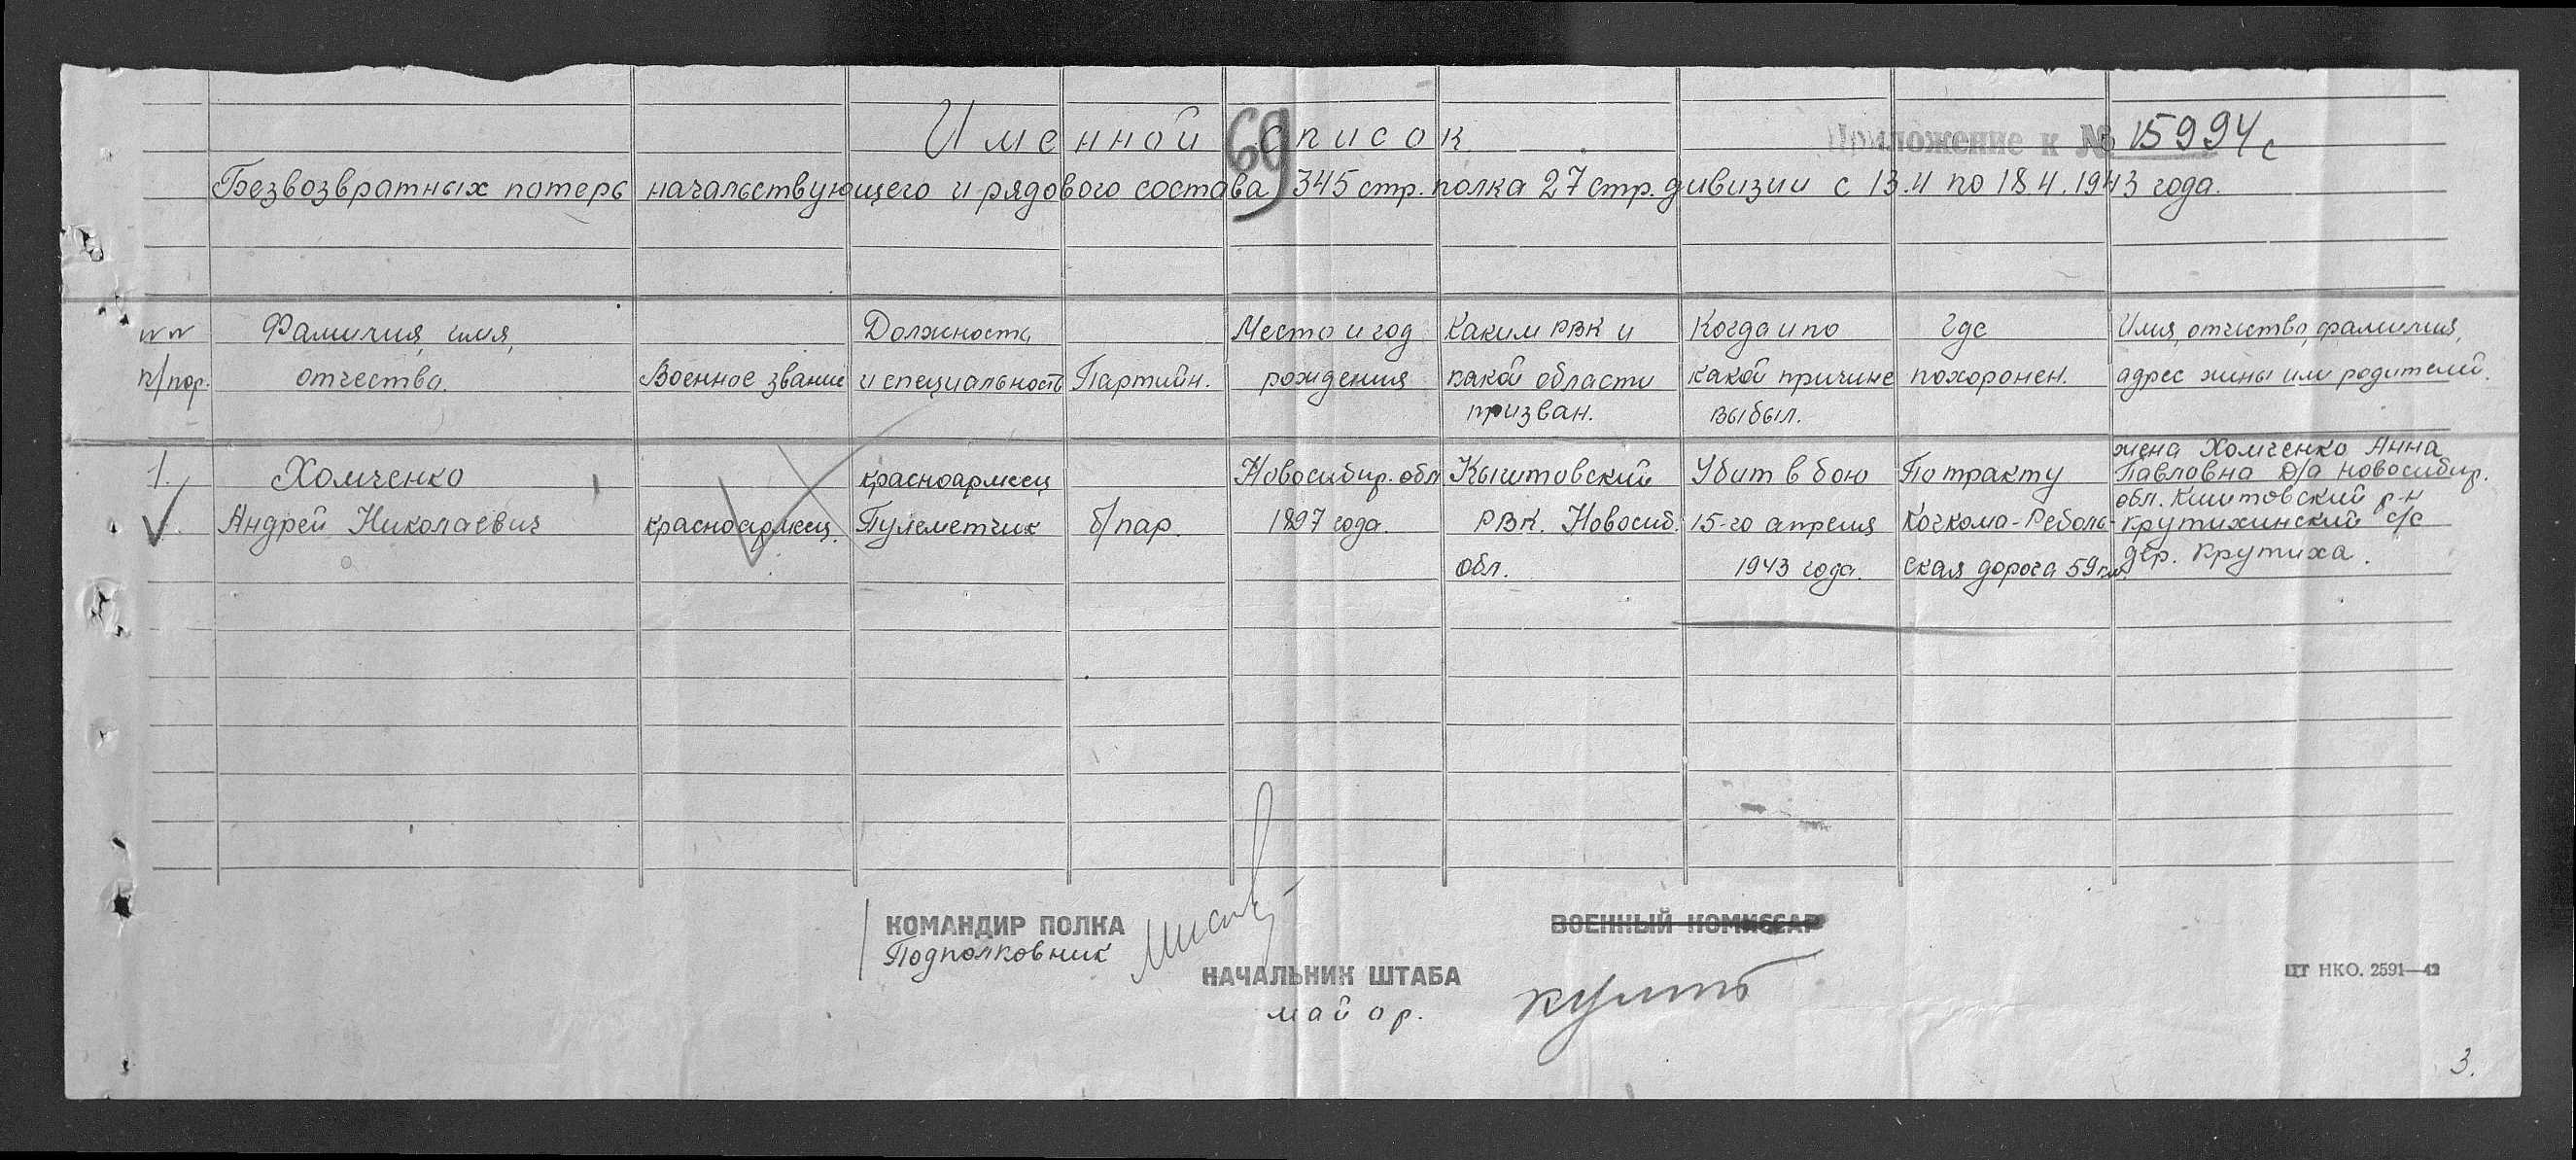 Именной список
69
Приложение к № 15994с
Безвозвратных потерь начальствующего и рядового состава 345 стр. полка 27 стр. дивизии с 13.4 по 18.4.1943 года.
№№ п/пор.
Фамилия, имя, отчество.
Военное звание
Должность и специальность
Партийн.
Место и год рождения
Каким РВК и какой области призван.
Когда и по какой причине выбыл.
Где похоронен.
Имя, отчество, фамилия, адрес жены или родителей.
1.
Хомченко
Андрей Николаевич
красноармеец.
красноармеец
Пулеметчик
б/пар.
Новосибир. обл
1897 года.
Кыштовский
РВК. Новосиб.
обл.
Убит в бою
15-го апреля
1943 года.
По тракту
Кочкома-Реболь-
ская дорога 59 км.
жена Хомченко Анна
Павловна д/а Новосибир.
обл. Киштовский р-н
Крутихинский с/с
дер. Крутиха.
КОМАНДИР ПОЛКА
Подполковник
ВОЕННЫЙ КОМИССАР
НАЧАЛЬНИК ШТАБА
майор.
ЦТ НКО. 2591—42
3.